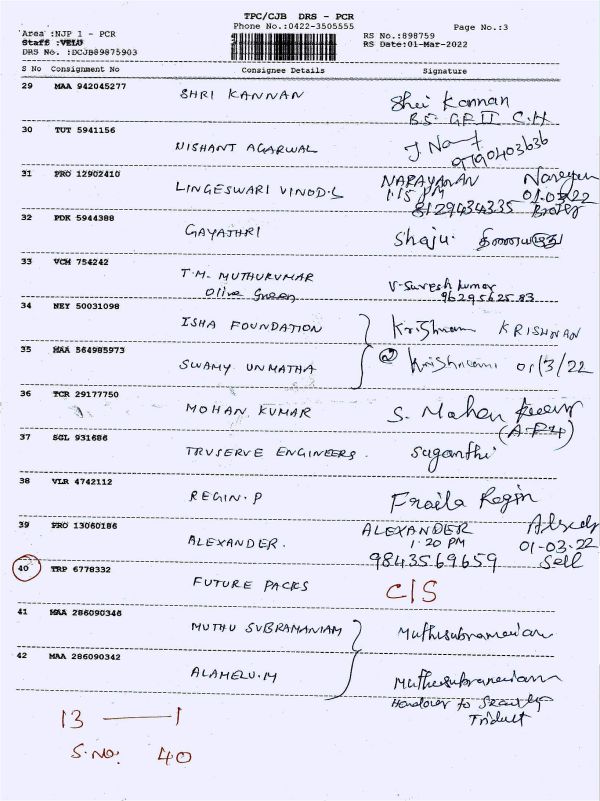 TPC/CJB DRS - PCR
Area :NJP 1 - PCR Phone No.:0422-3505555 Page No.:3
Staff :VELU RS No.:898759
DRS No. :DCJB89875903 RS Date:01-Mar-2022
S No Consignment No Consignee Details Signature
29 MAA 942045277 SHRI KANNAN Shri Kannan
B5 GF II C.H
30 TUT 5941156 NISHANT AGARWAL
9790403636
31 PRO 12902410 LINGESWARI VINOD.L NARAYANAN Narayan
1.15 PM 01-03-22
8129434335
32 PDK 5944388 GAYATHRI Shaju.
33 VCH 754242 T.M. MUTHUKUMAR V-Suresh kumar
Olive Green 9629562583
34 NEY 50031098 ISHA FOUNDATION KRISHNAN
35 MAA 564985973 SWAMY UNMATHA 01/3/22
36 TCR 29177750 MOHAN KUMAR S. Mohan
37 SGL 931686 TRUSERVE ENGINEERS. Suganthi
38 VLR 4742112 REGIN.P Fraila Regin
39 PRO 13060186 ALEXANDER. ALEXANDER
1.20 PM 01-03-22
9843569659 Self
40 TRP 6778332 FUTURE PACKS C/S
41 MAA 286090346 MUTHU SUBRAMANIAM Muthusubramanian
42 MAA 286090342 ALAMELU.M Muthusubramanian
Handover to Security
13 — 1
S.No. 40